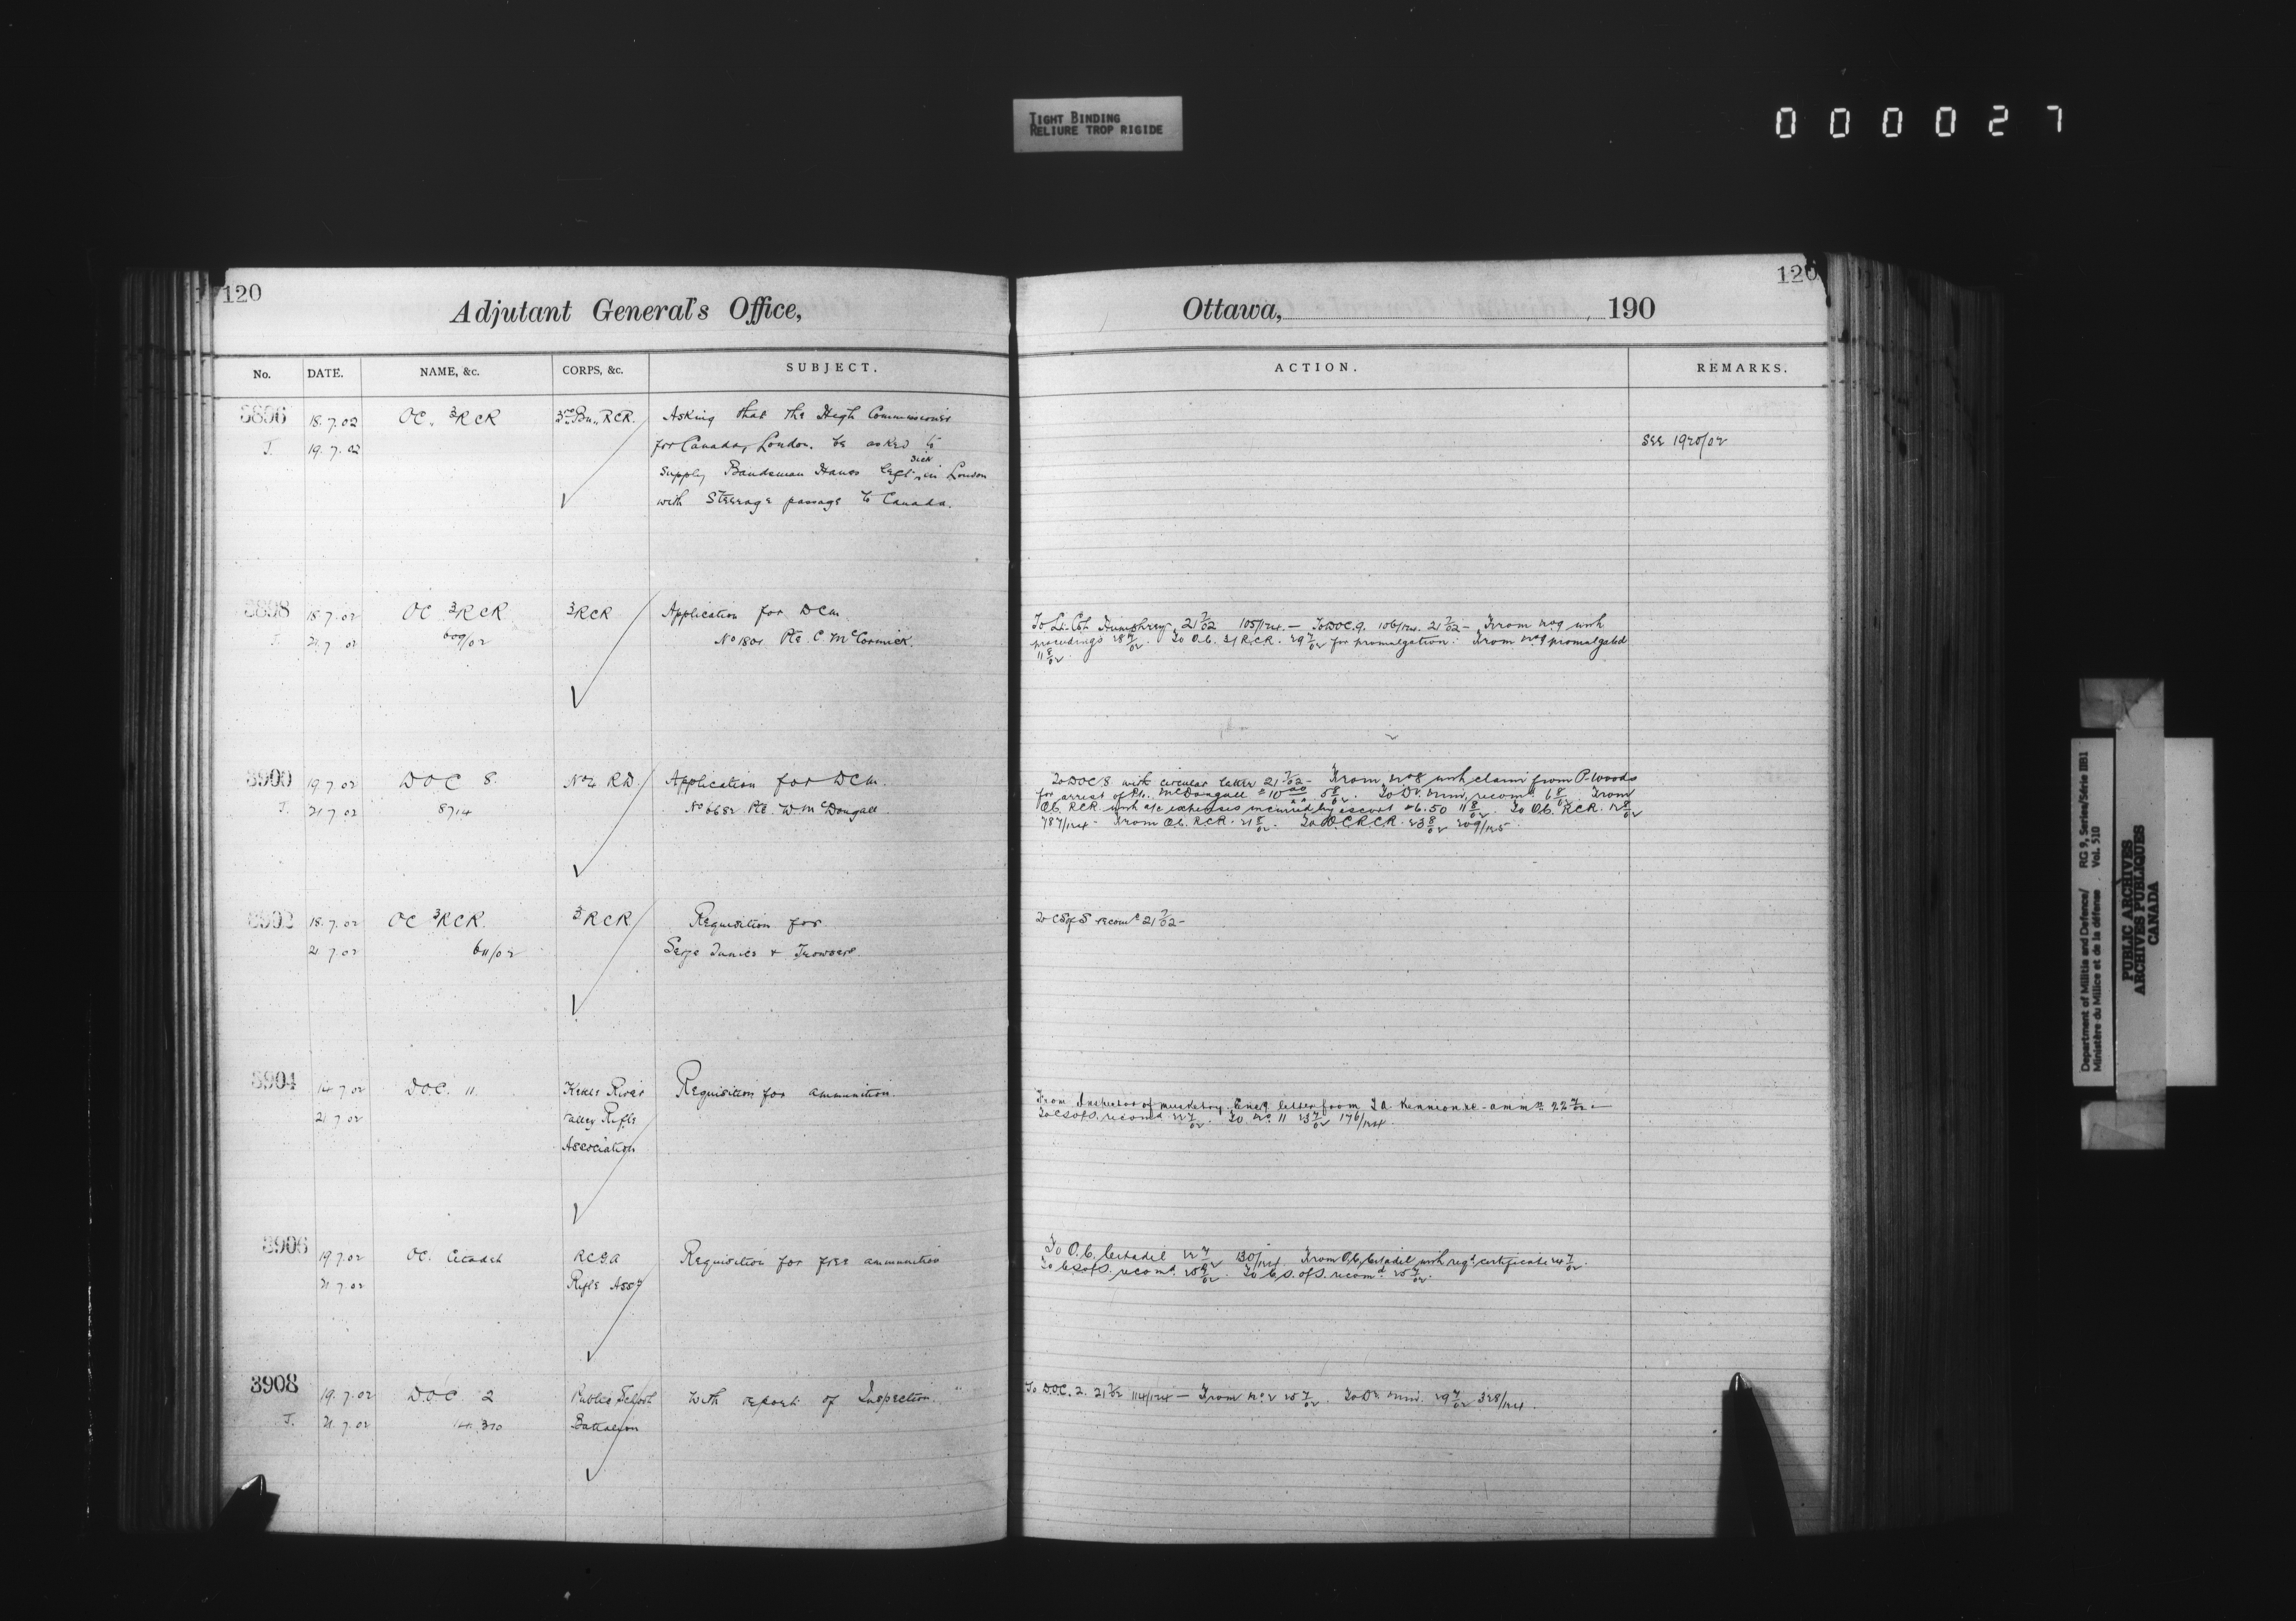 TIGHT BINDING
RELIURE TROP RIGIDE
000027
120
Adjutant General's Office,
No. DATE. NAME, &c. CORPS, &c. SUBJECT.
3896 18.7.02 OC. 3RCR 3rd Bn. RCR. Asking that the High Commissioner
J. 19.7.02 for Canada, London. be asked to
sick
supply Bandsman Hanes left in London
with Steerage passage to Canada.
3898 18.7.02 OC 3RCR 3RCR Application for DCM.
J. 21.7.02 609/02 No 1801 Pte. C. McCormick.
3900 19.7.02 DOC 8 No 4 R.D. Application for DCM.
J. 21.7.02 8714 No 6682 Pte. W. McDougall
3902 18.7.02 OC 3RCR. 3RCR Requisition for
21.7.02 611/02 Serge Tunics & Trowsers.
3904 14.7.02 DOC. 11. Kettle River Requisition for ammunition.
21.7.02 Valley Rifle
Association
3906 19.7.02 OC. Citadel RCGA Requisition for free ammunition
21.7.02 Rifle Assn
3908 19.7.02 D.O.C. 2 Public School With report of Inspection.
J. 21.7.02 14.310 Battalion
120
Ottawa, , 190
ACTION. REMARKS.
See 1920/02
To Lt. Col. Humphrey 21 7/02 105/124. — To DOC. 9. 106/124. 21 7/02 - From No 9 with
proceedings 28 7/02. To O.C. 3/R.C.R. 29 7/02 for promulgation. From No 9 promulgated
11 8/02.
To DOC 8 with circular letter 21 7/02 - From No 8 with claim from P. Woods
for arrest of Pte. McDougall $10 00 5 8/02. To Dr. Mmr, recomd. 6 8/02. From
O.C. RCR with a/c expenses incurred by escort $6.50 11 8/02. To O.C. RCR. 12 8/02
787/124 - From O.C. R.C.R. 21 8/02. To O.C. R.C.R. 23 8/02 209/125.
To CS of S recomd 21 7/02 -
From Inspector of musketry. Encg letter from ammn 22 7/02 —
To CS of S. recomd 22 7/02. To No. 11 23 7/02 176/124.
To O.C. Citadel 22 7/02 130/124. From O.C. Citadel with reqd certificate 24 7/02.
To C.S. of S. recomd. 25 7/02. To C.S. of S. recomd 25 7/02.
To DOC. 2. 21 7/02 114/124 — From No. 2 25 7/02. To Dr. Mmr. 29 7/02 328/124.
Department of Militia and Defence/ RG 9, Series/Série IIB1
Ministère du Milice et de la défense Vol. 510
PUBLIC ARCHIVES
ARCHIVES PUBLIQUES
CANADA